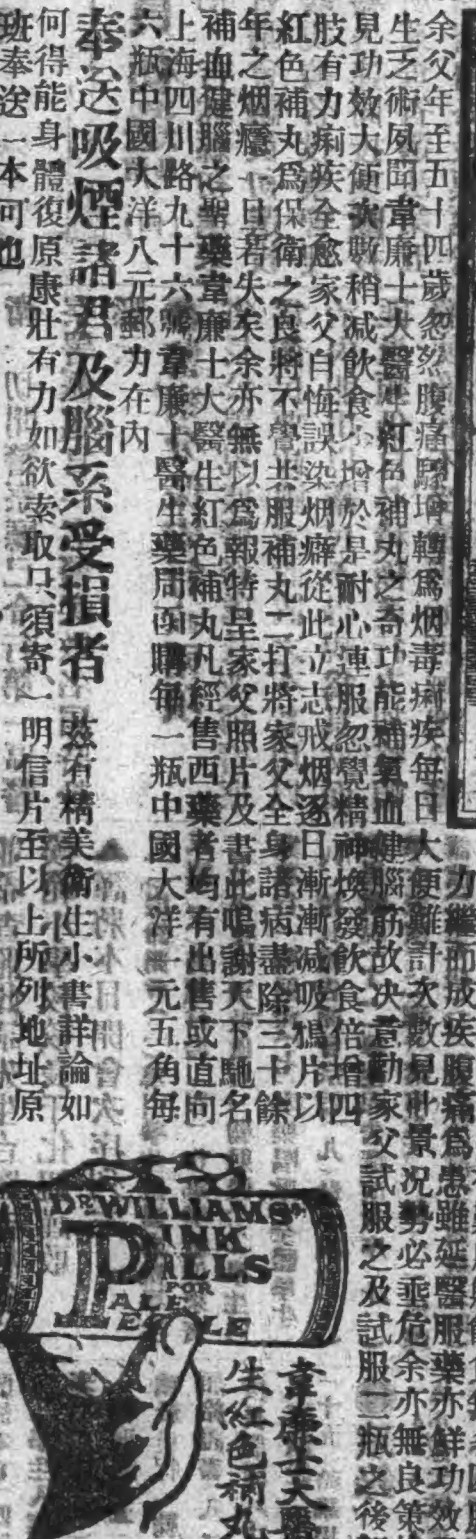 余父年至五十四歲忽然腹痛驟增轉爲烟毒痢疾每日大便難計次數見此景况勢必垂危余亦無良策
力繼而成疾腹痛爲患雖延醫服藥亦鮮功效
生乏術夙聞韋廉士大醫生紅色補丸之奇功能補氣血健腦筋故决意勸家父試服之及試服一二瓶之後
見功效大便次數稍减飲食少增於是耐心連服忽覺精神煥發飲食倍增四
肢有力痢疾全愈家父自悔誤染烟癖從此立志戒烟逐日漸漸减吸鴉片以
紅色補丸爲保衛之良將不覺共服補丸二打將家父全身諸病盡除三十餘
年之烟癮一日若失矣余亦無以爲報特呈家父照片及書此鳴謝天下馳名
補血健腦之聖藥韋廉士大醫生紅色補丸凡經售西藥者均有出售或直向
上海四川路九十六號韋廉士醫生藥局函購每一瓶中國大洋一元五角每
六瓶中國大洋八元郵力在內
奉送吸煙諸君及腦系受損者 茲有精美衛生小書詳論如
何得能身體復原康壯有力如欲索取只須寄一明信片至以上所列地址原
班奉送一本可也
DR WILLIAMS'
PINK
PILLS
FOR
PALE
PEOPLE
韋廉士大醫
生紅色補丸